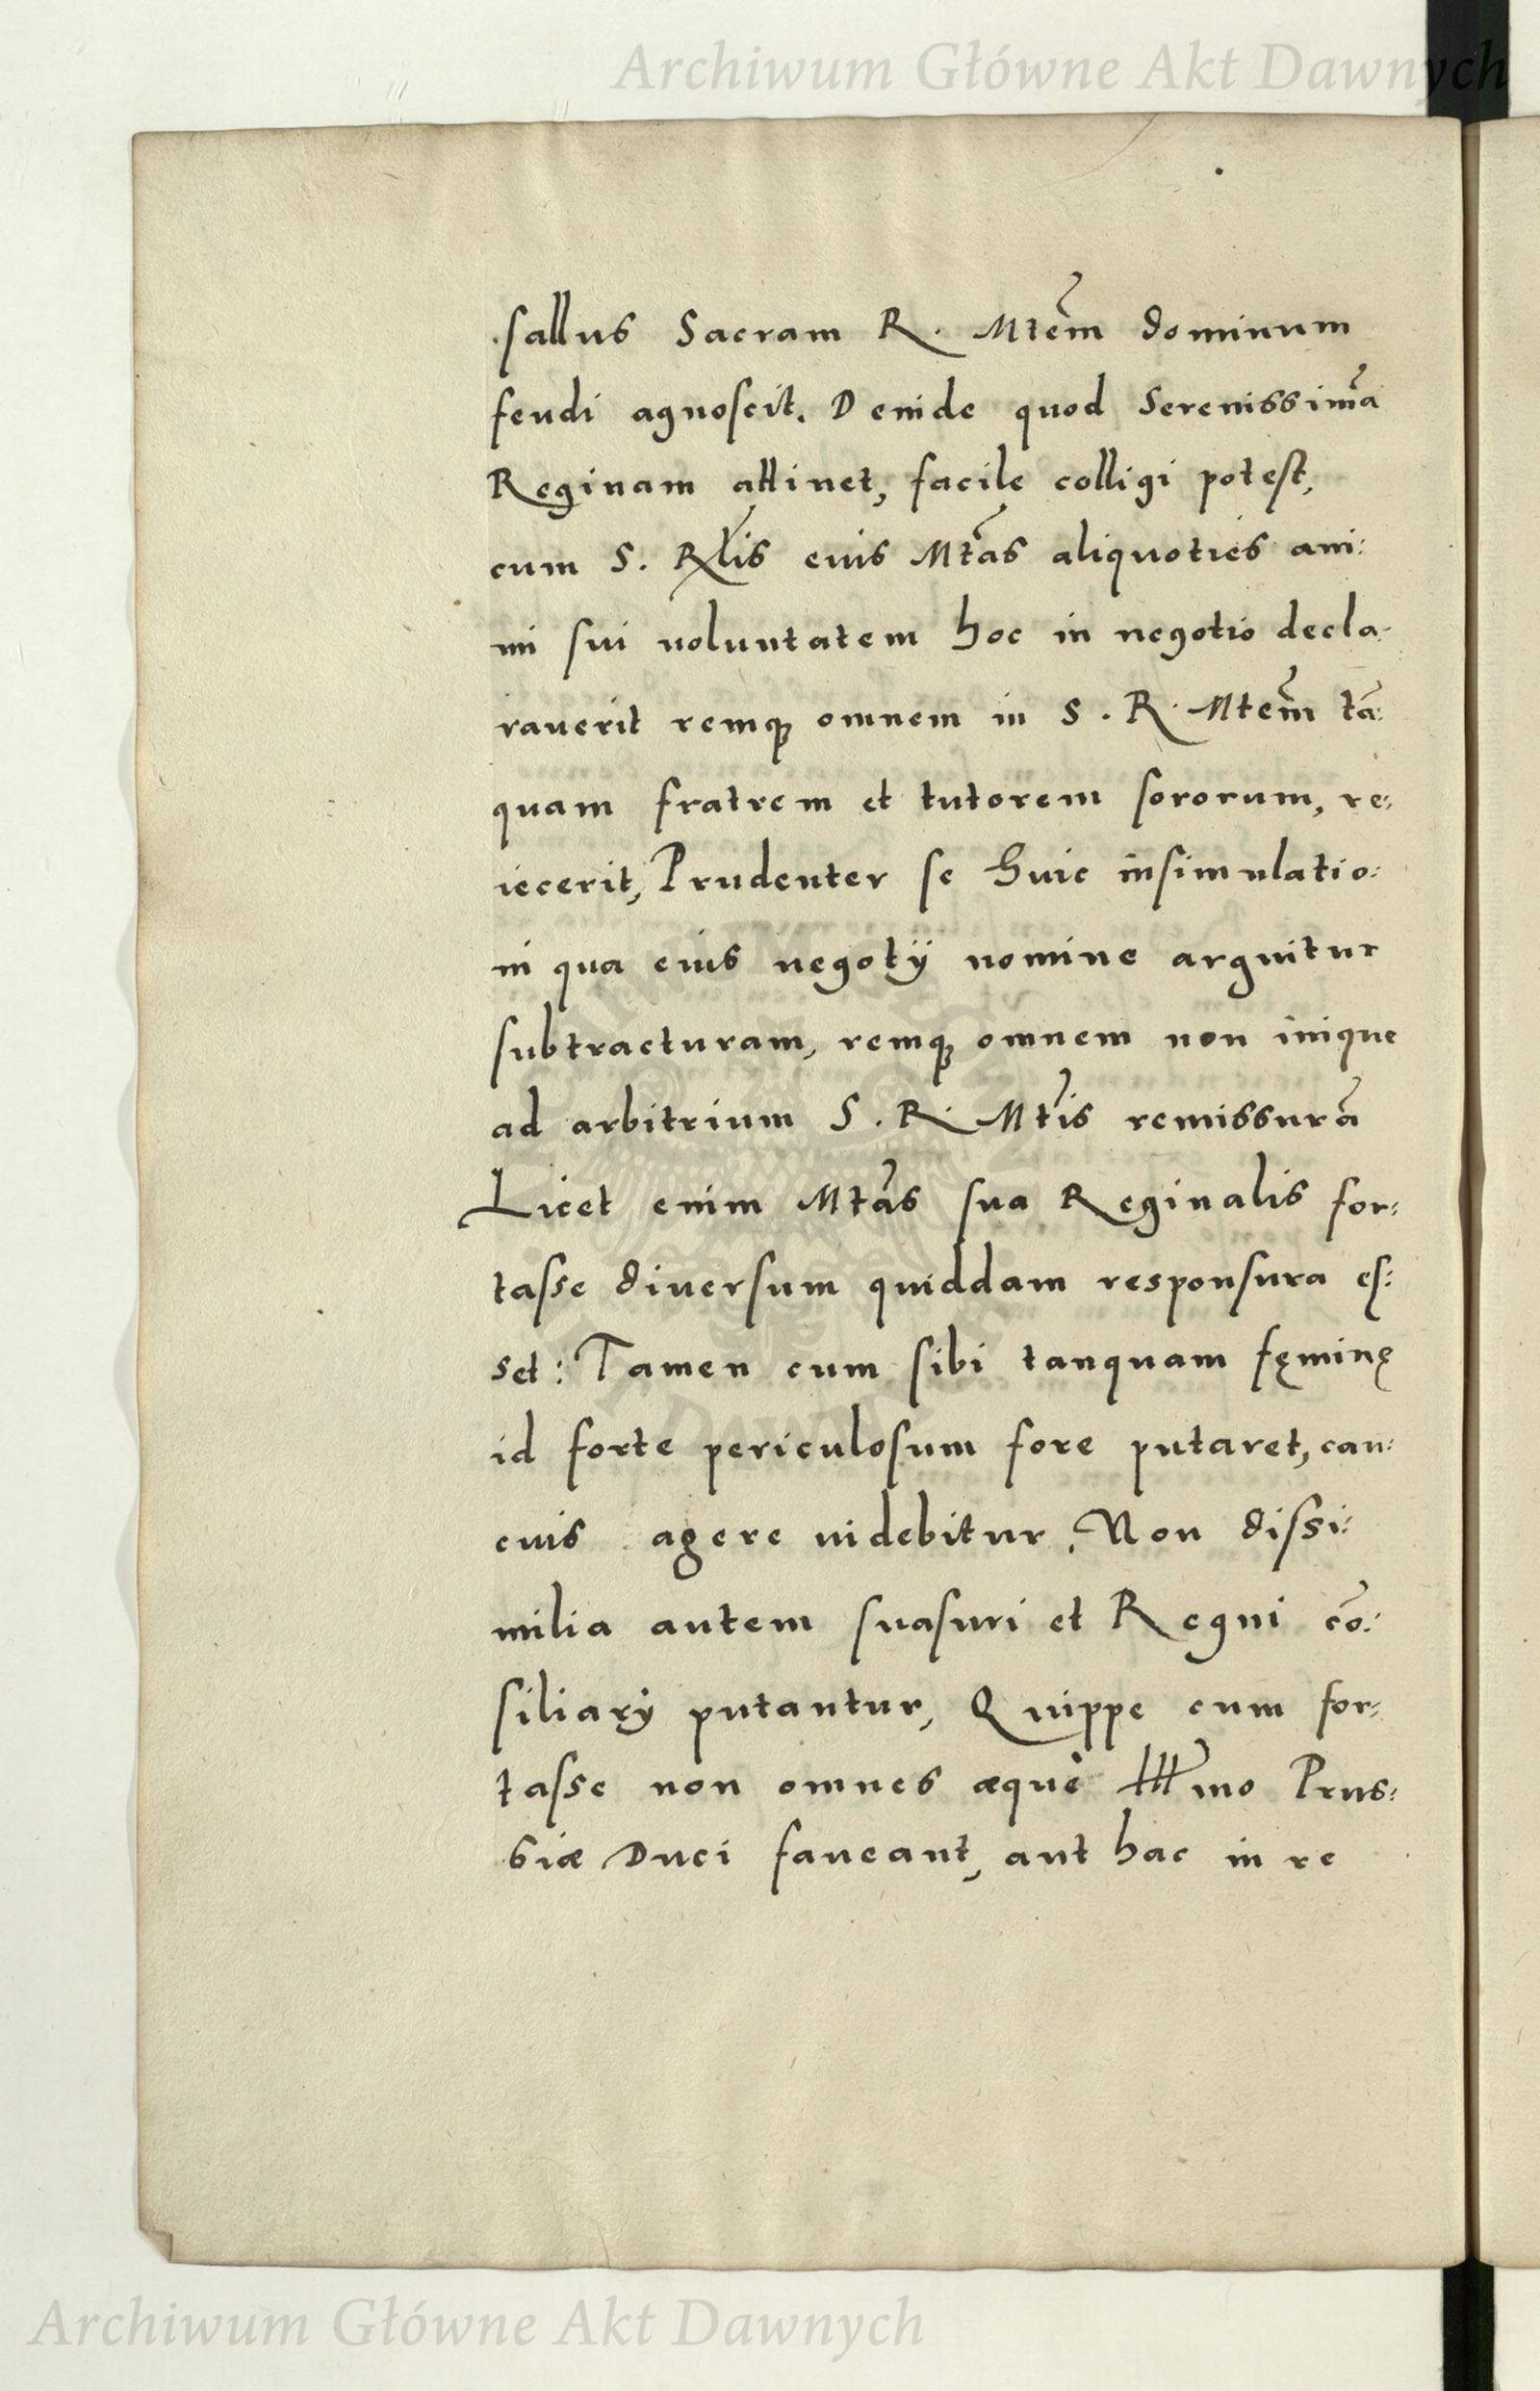 Archiwum Główne Akt Dawnych
sallus Sacram R. Mtem̃ dominum
feudi agnoscit. Deinde quod Serenissimã
Reginam attinet, facile colligi potest,
cum S. Rlis eius Mtãs aliquoties ani:
mi sui uoluntatem hoc in negotio decla-
rauerit remqꝫ omnem in S. R. Mtem̃ tã:
quam fratrem et tutorem sororum, re:
iecerit, Prudenter se huic insimulatio:
ni qua eius negotij nomine arguitur
subtracturam, remqꝫ omnem non inique
ad arbitrium S. R. Mtis remissurã
Licet enim Mtãs sua Reginalis for:
tasse diuersum quiddam responsura es:
set: Tamen cum sibi tanquam fęminę
id forte periculosum fore putaret, cau:
cius agere uidebitur. Non dissi:
milia autem suasuri et Regni cõ:
siliarÿ putantur, Quippe cum for:
tasse non omnes æque Illmo Prus:
siæ Duci faueant, aut hac in re
Archiwum Główne Akt Dawnych